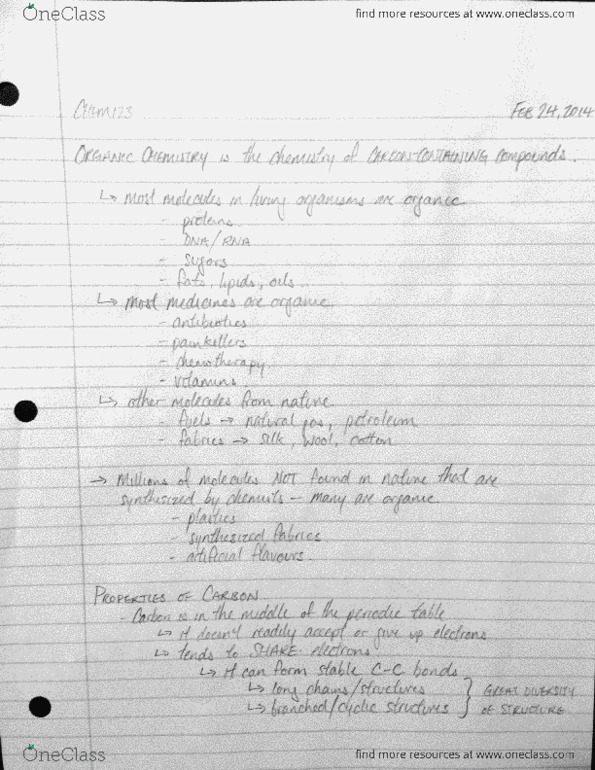 OneClass find more resources at www.oneclass.com
CHEM123 FEB 24, 2014
ORGANIC CHEMISTRY is the chemistry of CARBON-CONTAINING compounds.
↳ most molecules in living organisms are organic
- proteins
- DNA/RNA
- sugars
- fats, lipids, oils
↳ most medicines are organic
- antibiotics
- painkillers
- chemotherapy
- vitamins
↳ other molecules from nature
- fuels → natural gas, petroleum
- fabrics → silk, wool, cotton
→ Millions of molecules NOT found in nature that are
synthesized by chemists - many are organic
- plastics
- synthesized fabrics
- artificial flavours
PROPERTIES OF CARBON
- Carbon is in the middle of the periodic table
↳ it doesn't readily accept or give up electrons
↳ tends to SHARE electrons
↳ it can form stable C-C bonds
↳ long chains/structures } GREAT DIVERSITY
↳ branched/cyclic structures } OF STRUCTURE
OneClass find more resources at www.oneclass.com